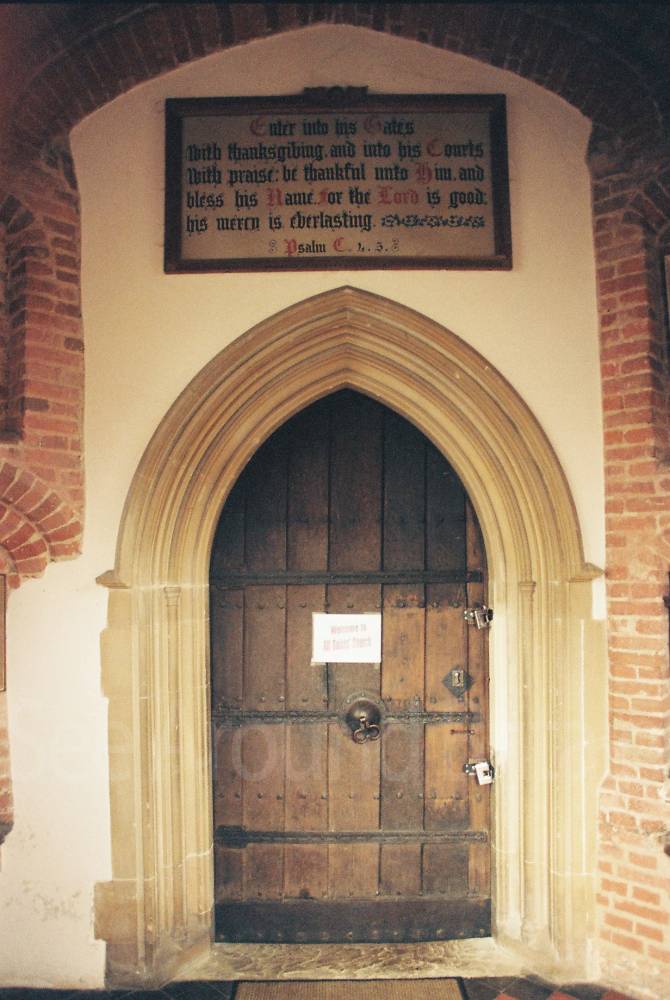 Enter into his Gates
With thanksgiving. and into his Courts
With praise: be thankful unto Him. and
bless his Name. For the Lord is good:
his mercy is everlasting.
Psalm C. 4. 5.
Welcome to
All Saints' Church